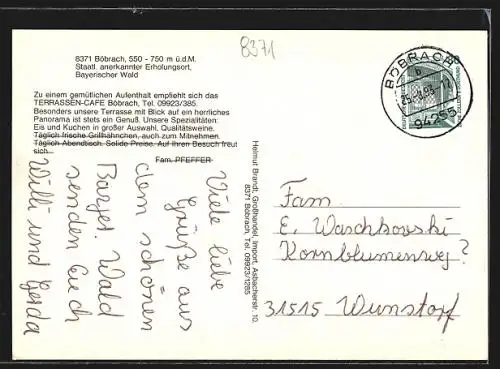 8371
8371 Böbrach, 550 - 750 m ü.d.M.
Staatl. anerkannter Erholungsort,
Bayerischer Wald
Zu einem gemütlichen Aufenthalt empfiehlt sich das
TERRASSEN-CAFE Böbrach, Tel. 09923/385.
Besonders unsere Terrasse mit Blick auf ein herrliches
Panorama ist stets ein Genuß. Unsere Spezialitäten:
Eis und Kuchen in großer Auswahl, Qualitätsweine.
Täglich frische Grillhähnchen, auch zum Mitnehmen.
Täglich Abendtisch. Solide Preise. Auf Ihren Besuch freut
sich
Fam. PFEFFER
Viele liebe
Grüße aus
dem schönen
Bayer. Wald
senden Euch
Willi und Gerda
Helmut Brandt, Großhandel, Import, Asbacherstr. 10,
8371 Böbrach, Tel. 09923/1285
BÖBRACH
b
94255
Fam.
E. Waschkowski
Kornblumenweg ?
31515 Wunstorf